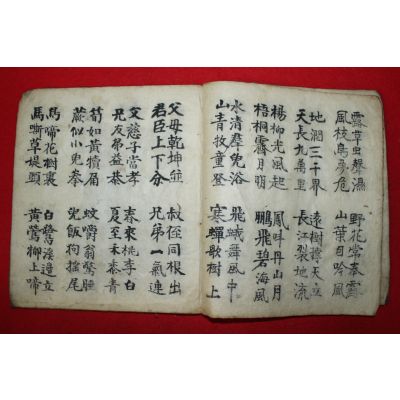 露草虫聲濕 野花常
風枝鳥夢危 山葉自吟風
地濶三千界 遠樹撐天立
天長九萬里 長江裂地流
楊柳光風起 鳳味丹山月
梧桐霽月明 鵬飛碧海風
水清群鳧浴 飛蛾舞風中
山青牧童登 寒蟬歌樹上
父母乾坤並 叔侄同根出
君臣上下分 兄弟一氣連
父慈子當孝 春來桃李白
兄友弟益恭 夏至禾黍青
筍如黃犢角 蚊嚼翁驚睡
蕨似小兒拳 兒飯狗搖尾
鳥啼花樹裏 白鷺溪邊立
馬嘶草堤頭 黃鶯柳上啼